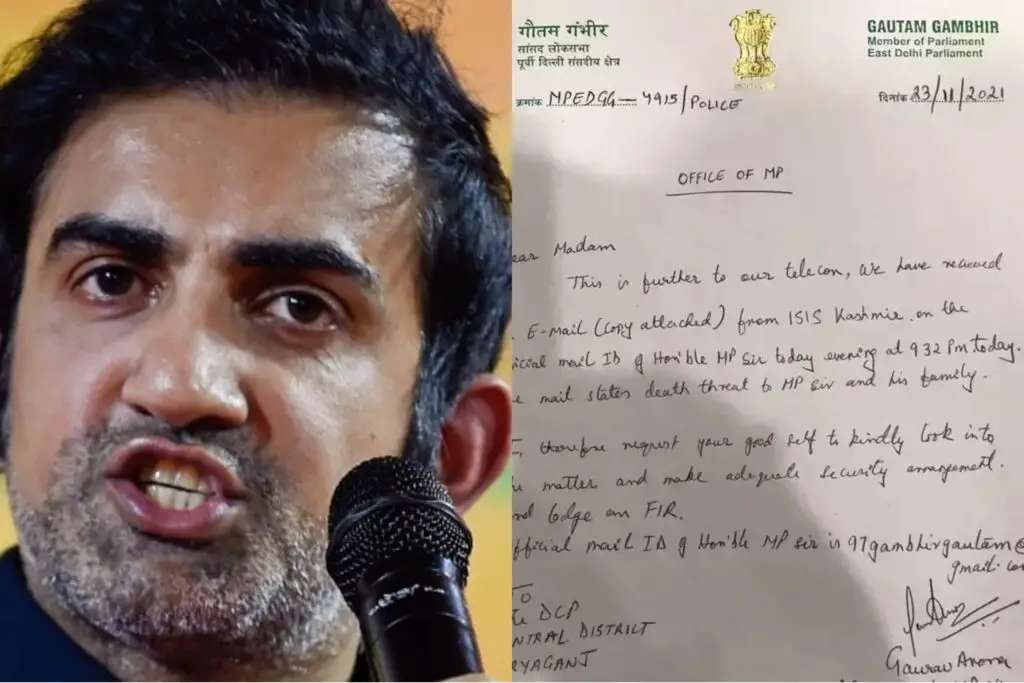 गौतम गंभीर
सांसद लोकसभा
पूर्वी दिल्ली संसदीय क्षेत्र
GAUTAM GAMBHIR
Member of Parliament
East Delhi Parliament
क्रमांक MPEDGG-4915/POLICE
दिनांक 23/11/2021
OFFICE OF MP
ear Madam
This is further to our telecon, we have received
E-Mail (copy attached) from ISIS Kashmir on the
icial mail ID of Hon'ble MP Sir today evening at 9 32 Pm today.
e mail states death threat to MP sir and his family.
I, therefore request your good self to kindly look into
he matter and make adequate security arrangement.
nd lodge an FIR.
fficial mail ID of Hon'ble MP sir is 97gambhirgautam@
gmail.com
TO
he DCP
NTRAL DISTRICT
RYAGANJ
Gaurav Arora